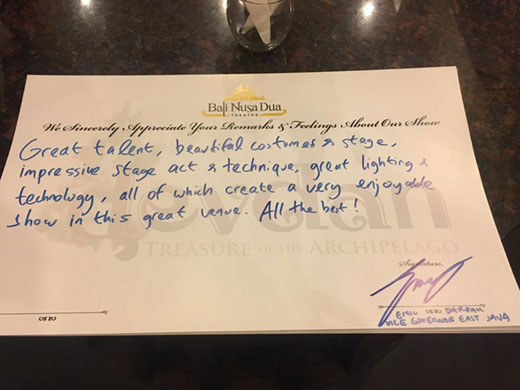 Bali Nusa Dua
THEATRE
We Sincerely Appreciate Your Remarks & Feelings About Our Show
Great talent, beautiful costumes & stage,
impressive stage act & technique, great lighting &
technology, all of which create a very enjoyable
show in this great venue. All the best!
Devdan
TREASURE OF THE ARCHIPELAGO
Signature,
EMIL DARDAK
VICE GOVERNOR EAST JAVA